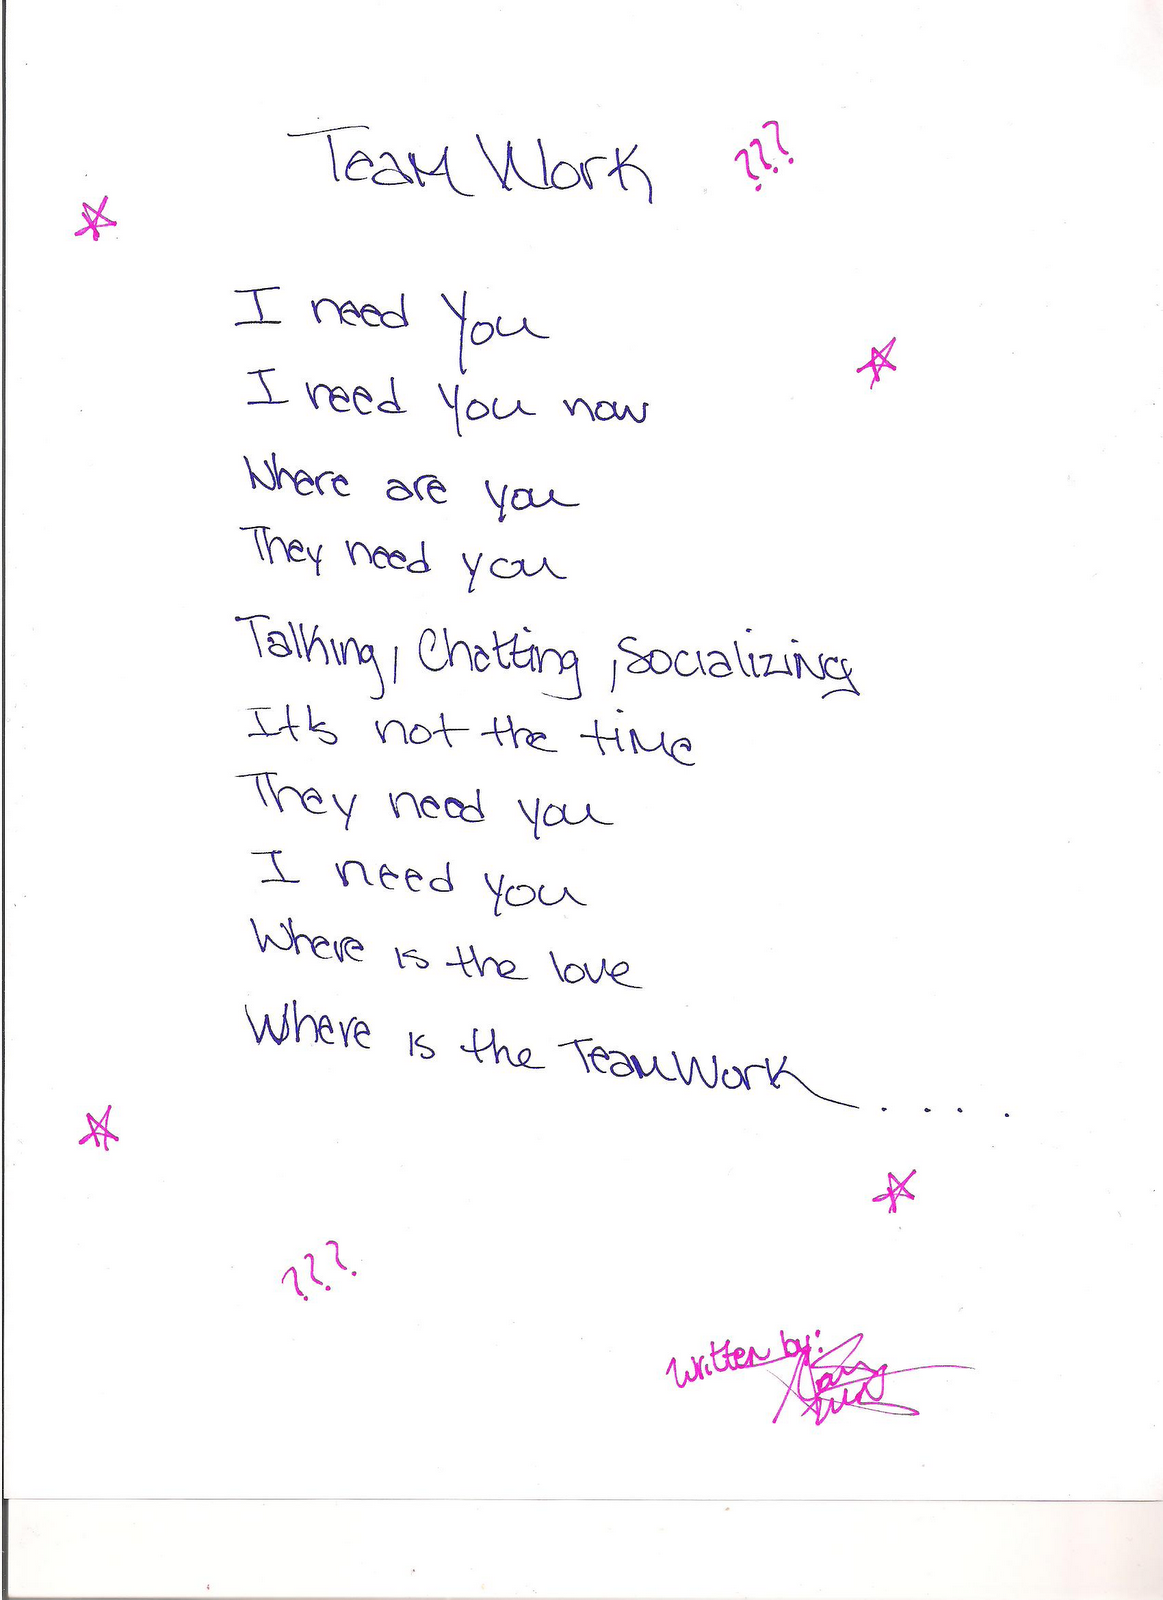 Team Work ???
I need you
I need you now
Where are you
They need you
Talking, Chatting, Socializing
It's not the time
They need you
I need you
Where is the love
Where is the TeamWork . . . .
???
Written by: